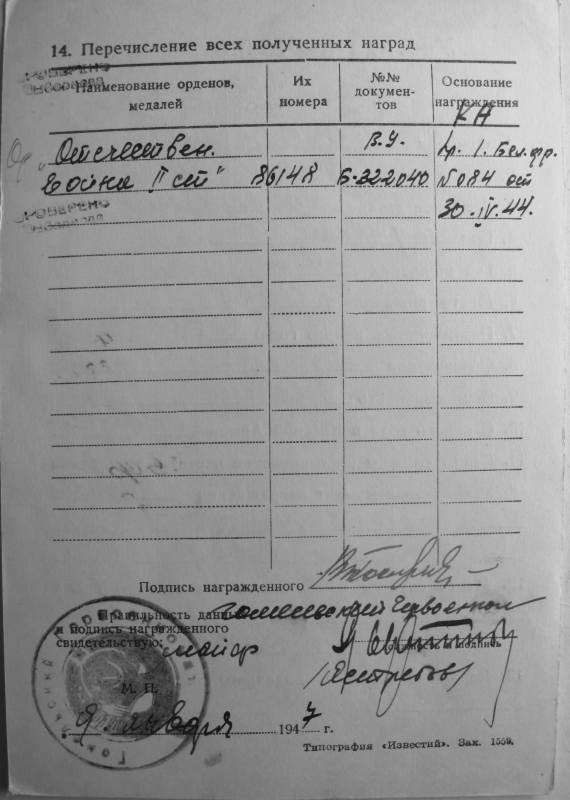 14. Перечисление всех полученных наград
ПРОВЕРЕНО
Наименование орденов, медалей
Их номера
№№ докумен-тов
Основание награждения
КА
Ор. „Отечествен.
В.У.
Пр. 1. Бел. фр.
Война II ст"
86148
Б-322040
№084 от
ПРОВЕРЕНО
30.IV.44.
Подпись награжденного
Правильность данных
и подпись награжденного
свидетельствую:
майор
должность и подпись
М. П.
9 января 1947 г.
Типография «Известий». Зак. 1559.